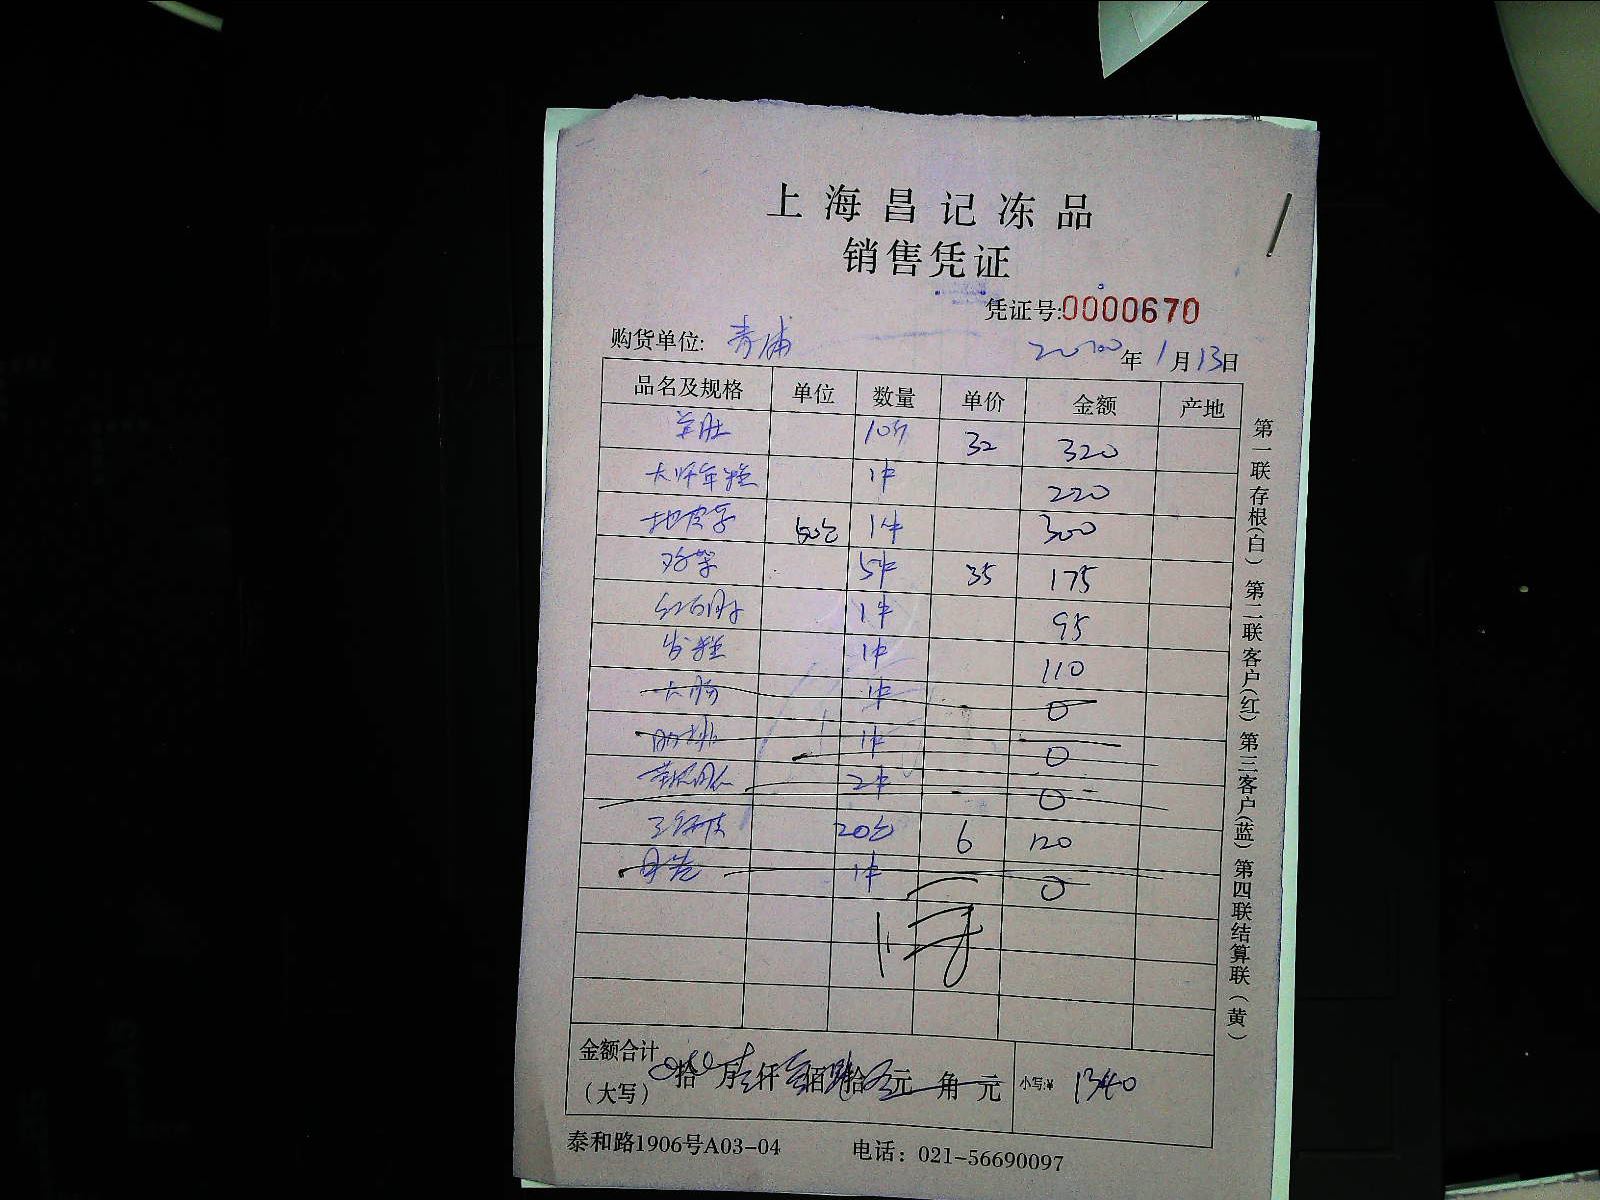 上海昌记冻品
销售凭证
凭证号:0000670
购货单位: 青浦 年 1月13日
品名及规格 单位 数量 单价 金额 产地
羊肚 10斤 32 320
大师年糕 1件 220
50包 1件 300
鸡架 5件 35 175
1件 95
1件 110
大肠 1件 0
肋排 1件 0
2件 0
20包 6 120
1件 0
金额合计
(大写) 拾 万 仟 佰 拾 元 角 元 小写:¥ 1340
泰和路1906号A03-04 电话：021-56690097
第一联存根(白) 第二联客户(红) 第三客户(蓝) 第四联结算联(黄)